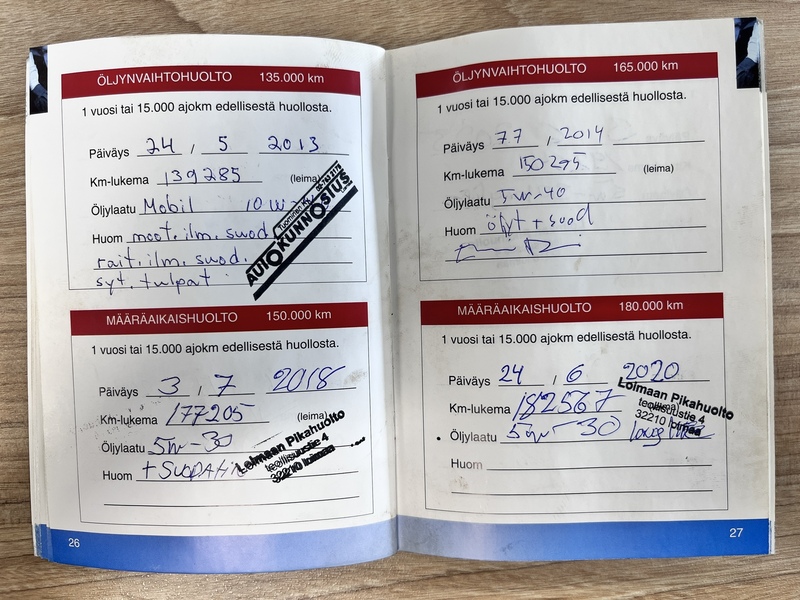 ÖLJYNVAIHTOHUOLTO 135.000 km
1 vuosi tai 15.000 ajokm edellisestä huollosta.
Päiväys 24 / 5 2013
Km-lukema 139285 (leima)
Öljylaatu Mobil 10w
Huom moot. ilm. suod.
rait. ilm. suod.
syt. tulpat
Tuominen
AUTOKUNNOSTUS
MÄÄRÄAIKAISHUOLTO 150.000 km
1 vuosi tai 15.000 ajokm edellisestä huollosta.
Päiväys 3 / 7 2018
Km-lukema 177205 (leima)
Öljylaatu 5w-30
Huom + SUODATIN
Loimaan Pikahuolto
teollisuustie 4
32210 loimaa
26
ÖLJYNVAIHTOHUOLTO 165.000 km
1 vuosi tai 15.000 ajokm edellisestä huollosta.
Päiväys 7 7 , 2014
Km-lukema 150295 (leima)
Öljylaatu 5w-40
Huom öljyt + suod
MÄÄRÄAIKAISHUOLTO 180.000 km
1 vuosi tai 15.000 ajokm edellisestä huollosta.
Päiväys 24 / 6 2020
Km-lukema 182567 (leima)
Öljylaatu 5w-30
Huom
Loimaan Pikahuolto
teollisuustie 4
32210 loimaa
27